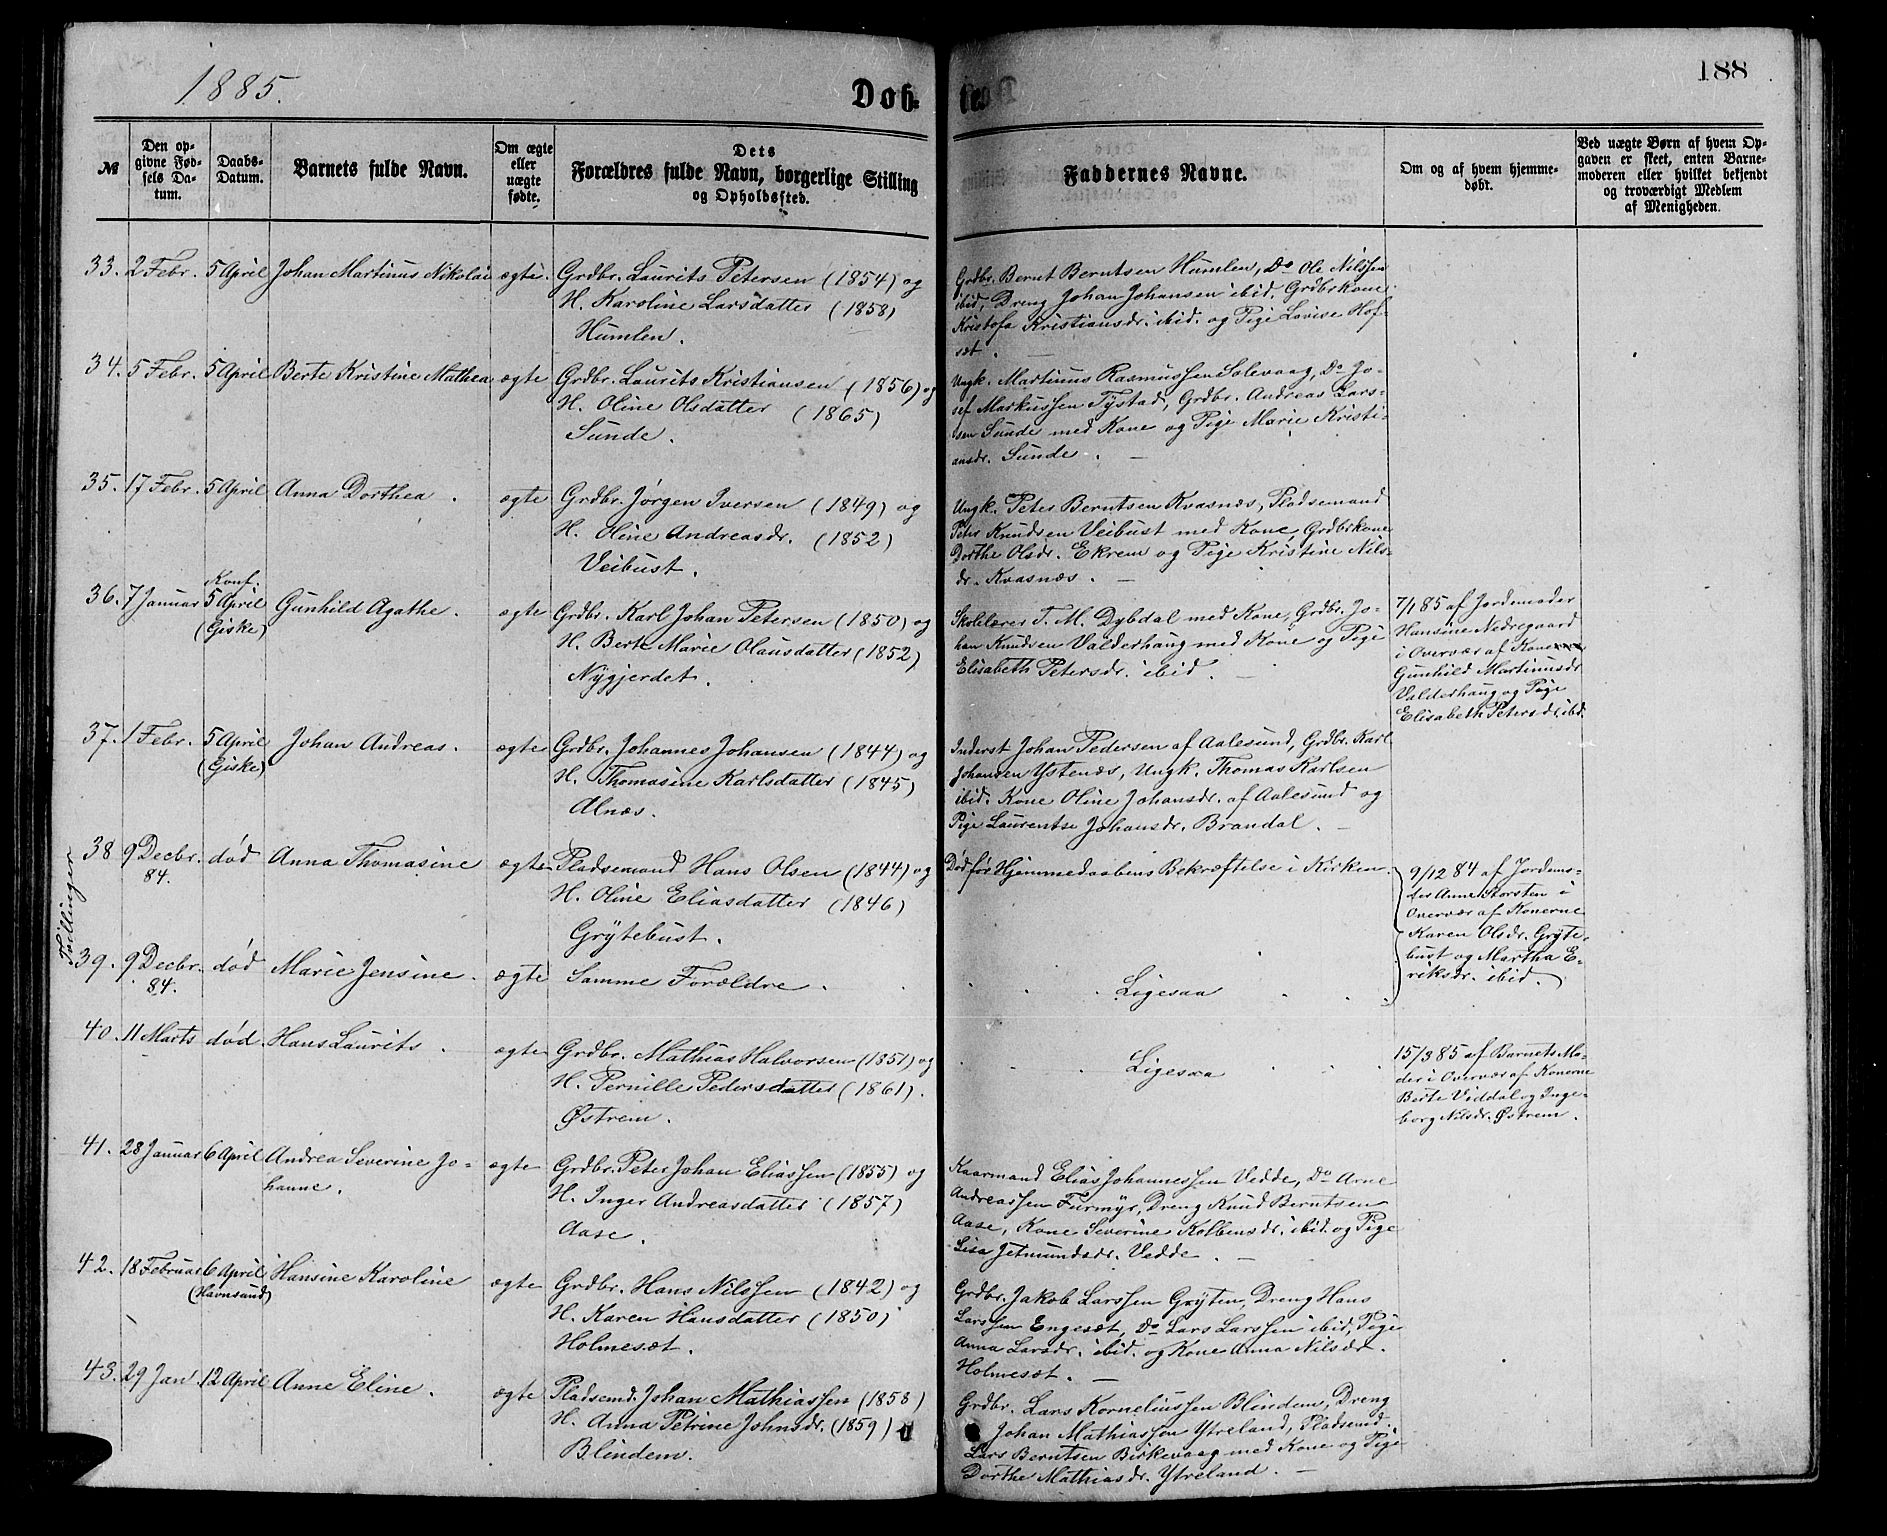 1885.
Døb-
te.
188
№
Den op-
givne Fød-
sels Da-
tum.
Daabs-
Datum.
Barnets fulde Navn.
Om ægte
eller
uægte
fødte.
Dets
Forældres fulde Navn, borgerlige Stilling
og Opholdssted.
Faddernes Navne.
Om og af hvem hjemme-
døbt.
Ved uægte Børn af hvem Op-
gaven er skeet, enten Barne-
moderen eller hvilket bekjendt
og troværdigt Medlem
af Menigheden.
33. 2 Febr. 5 April Johan Martinus Nikolai ægte. Grdbr. Laurits Petersen (1854) og
H. Karoline Larsdatter (1858)
Humlen.
Grdbr. Bernt Berntsen Humlen, Do Ole Nilssen
ibid, Dreng Johan Johansen ibid. Grdbrkone
Kristofa Kristiansdr. ibid. og Pige Lovise Hof-
sæt.
34. 5 Febr. 5 April Berte Kristine Mathea ægte Grdbr. Laurits Kristiansen (1856) og
H. Oline Olsdatter (1865)
Sunde.
Ungk. Martinus Rasmussen Solevaag, Do Jo-
sef Markussen Tystad, Grdbr. Andreas Lars-
sen Sunde med Kone og Pige Marie Kristi-
ansdr. Sunde. —
35. 17 Febr. 5 April Anna Dorthea. ægte Grdbr. Jørgen Iversen (1849) og
H. Oline Andreasdr. (1852)
Veibust.
Ungk. Peter Berntsen Kvasnæs, Pladsemand
Peter Knudsen Veibust med Kone, Grdbrkone
Dorthe Olsdr. Ekrem og Pige Kristine Nils-
dr. Kvasnæs. —
Konf.
36. 7 Januar 5 April Gunhild Agathe. ægte Grdbr. Karl Johan Petersen (1850) og
(Giske)
H. Berte Marie Olausdatter (1852)
Nygjerdet.
Skolelærer T. M. Dybdal med Kone, Grdbr. Jo-
han Knudsen Valderhaug med Kone og Pige
Elisabeth Petersdr. ibid. —
7/1 85 af Jordemoder
Hansine Nedregaard
i Overvær af Kone
Gunhild Martinusdr
Valderhaug og Pige
Elisabeth Petersdr. ibd.
37. 1 Febr. 5 April Johan Andreas. ægte Grdbr. Johannes Johansen (1844) og
(Giske)
H. Thomasine Karlsdatter (1845)
Alnæs.
Inderst Johan Pedersen af Aalesund, Grdbr. Karl
Johansen Ystenæs, Ungk. Thomas Karlsen
ibid. Kone Oline Johansdr. af Aalesund og
Pige Laurentse Johansdr. Brandal. —
Tvillinger
38 9 Decbr. død Anna Thomasine ægte Pladsemand Hans Olsen (1844) og
84.
H. Oline Eliasdatter (1846)
Grytebust.
Død før Hjemmedaabens Bekræftelse i Kirken.
9/12 84 af Jordemo-
der Anne Storsten i
Overvær af Konerne
Karen Olsdr. Gryte-
bust og Martha E-
riksdr. ibid.
39. 9 Decbr. død Marie Jensine. ægte Samme Forældre.
84.
Ligesaa
40. 11 Marts død. Hans Laurits. ægte Grdbr. Mathias Halvorsen (1851) og
H. Pernille Pedersdatter (1861).
Østrem.
Ligesaa
15/3 85 af Barnets Mo-
der i Overvær af Konerne
Berte Viddal og Inge-
borg Nilsdr. Østrem.
41. 28 Januar 6 April Andrea Severine Jo- ægte Grdbr. Peter Johan Eliassen (1855) og
hanne.
H. Inger Andreasdatter (1857)
Aase.
Kaarmand Elias Johannessen Vedde, Do Arne
Andreassen Furmyr, Dreng Knud Berntsen
Aase, Kone Severine Kolbensdr. ibid. og Pige
Lisa Jetmundsdr. Vedde. —
42. 18 Februar 6 April Hansine Karoline ægte Grdbr. Hans Nilssen (1842) og
(Havnsund)
H. Karen Hansdatter (1850)
Holmesæt.
Grdbr. Jakob Larssen Gryten, Dreng Hans
Larssen Engesæt, Do Lars Larssen ibid, Pige
Anna Larsdr. ibid. og Kone Anna Nilsdr.
Holmesæt. —
43. 29 Jan. 12 April Anne Eline. ægte Pladsemd. Johan Mathiassen (1858)
H. Anna Petrine Johnsdr. (1859)
Blindem.
Grdbr. Lars Korneliussen Blindem, Dreng
Johan Mathiassen Ytreland, Pladsemd.
Lars Berntsen Birkevaag med Kone og Pige
Dorthe Mathiasdr. Ytreland. —